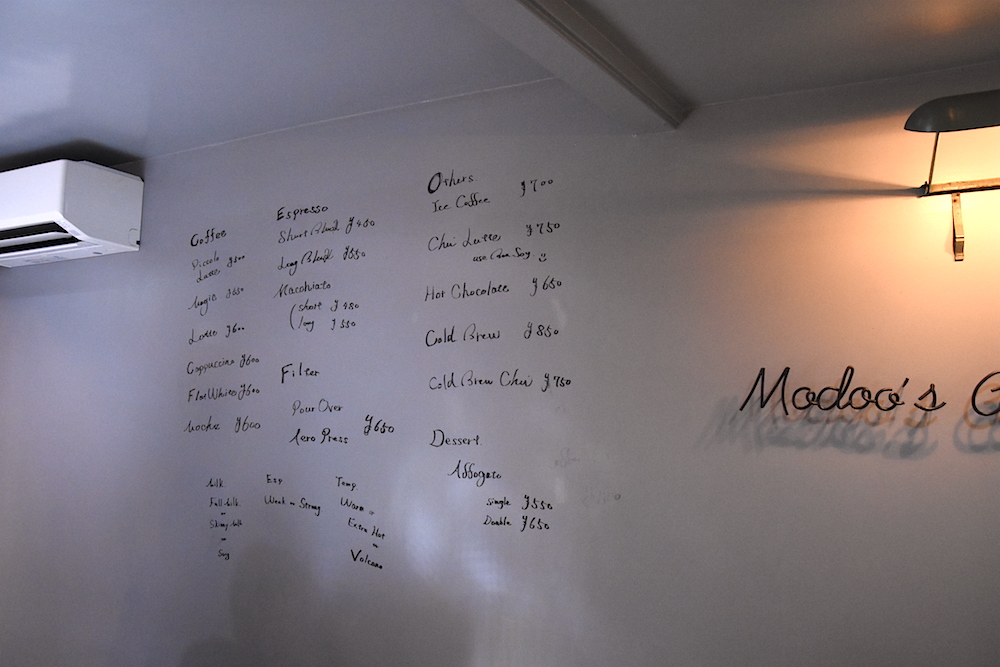 Coffee
Piccolo
Latte ¥500
Magic ¥550
Latte ¥600
Cappuccino ¥600
Flat White ¥600
Mocha ¥600
Espresso
Short Black ¥450
Long Black ¥550
Macchiato
(short ¥480
long ¥550
Filter
Pour Over
Aero Press ¥650
Others
Ice Coffee ¥700
Chai Latte ¥750
use Soy.
Hot Chocolate ¥650
Cold Brew ¥850
Cold Brew Chai ¥750
Dessert
Affogato
single ¥550
Double ¥650
Milk
Full-Milk
or
Skinny-Milk
or
Soy
Esp
Weak or Strong
Temp.
Warm or
Extra Hot
or
Volcano
Modoo's